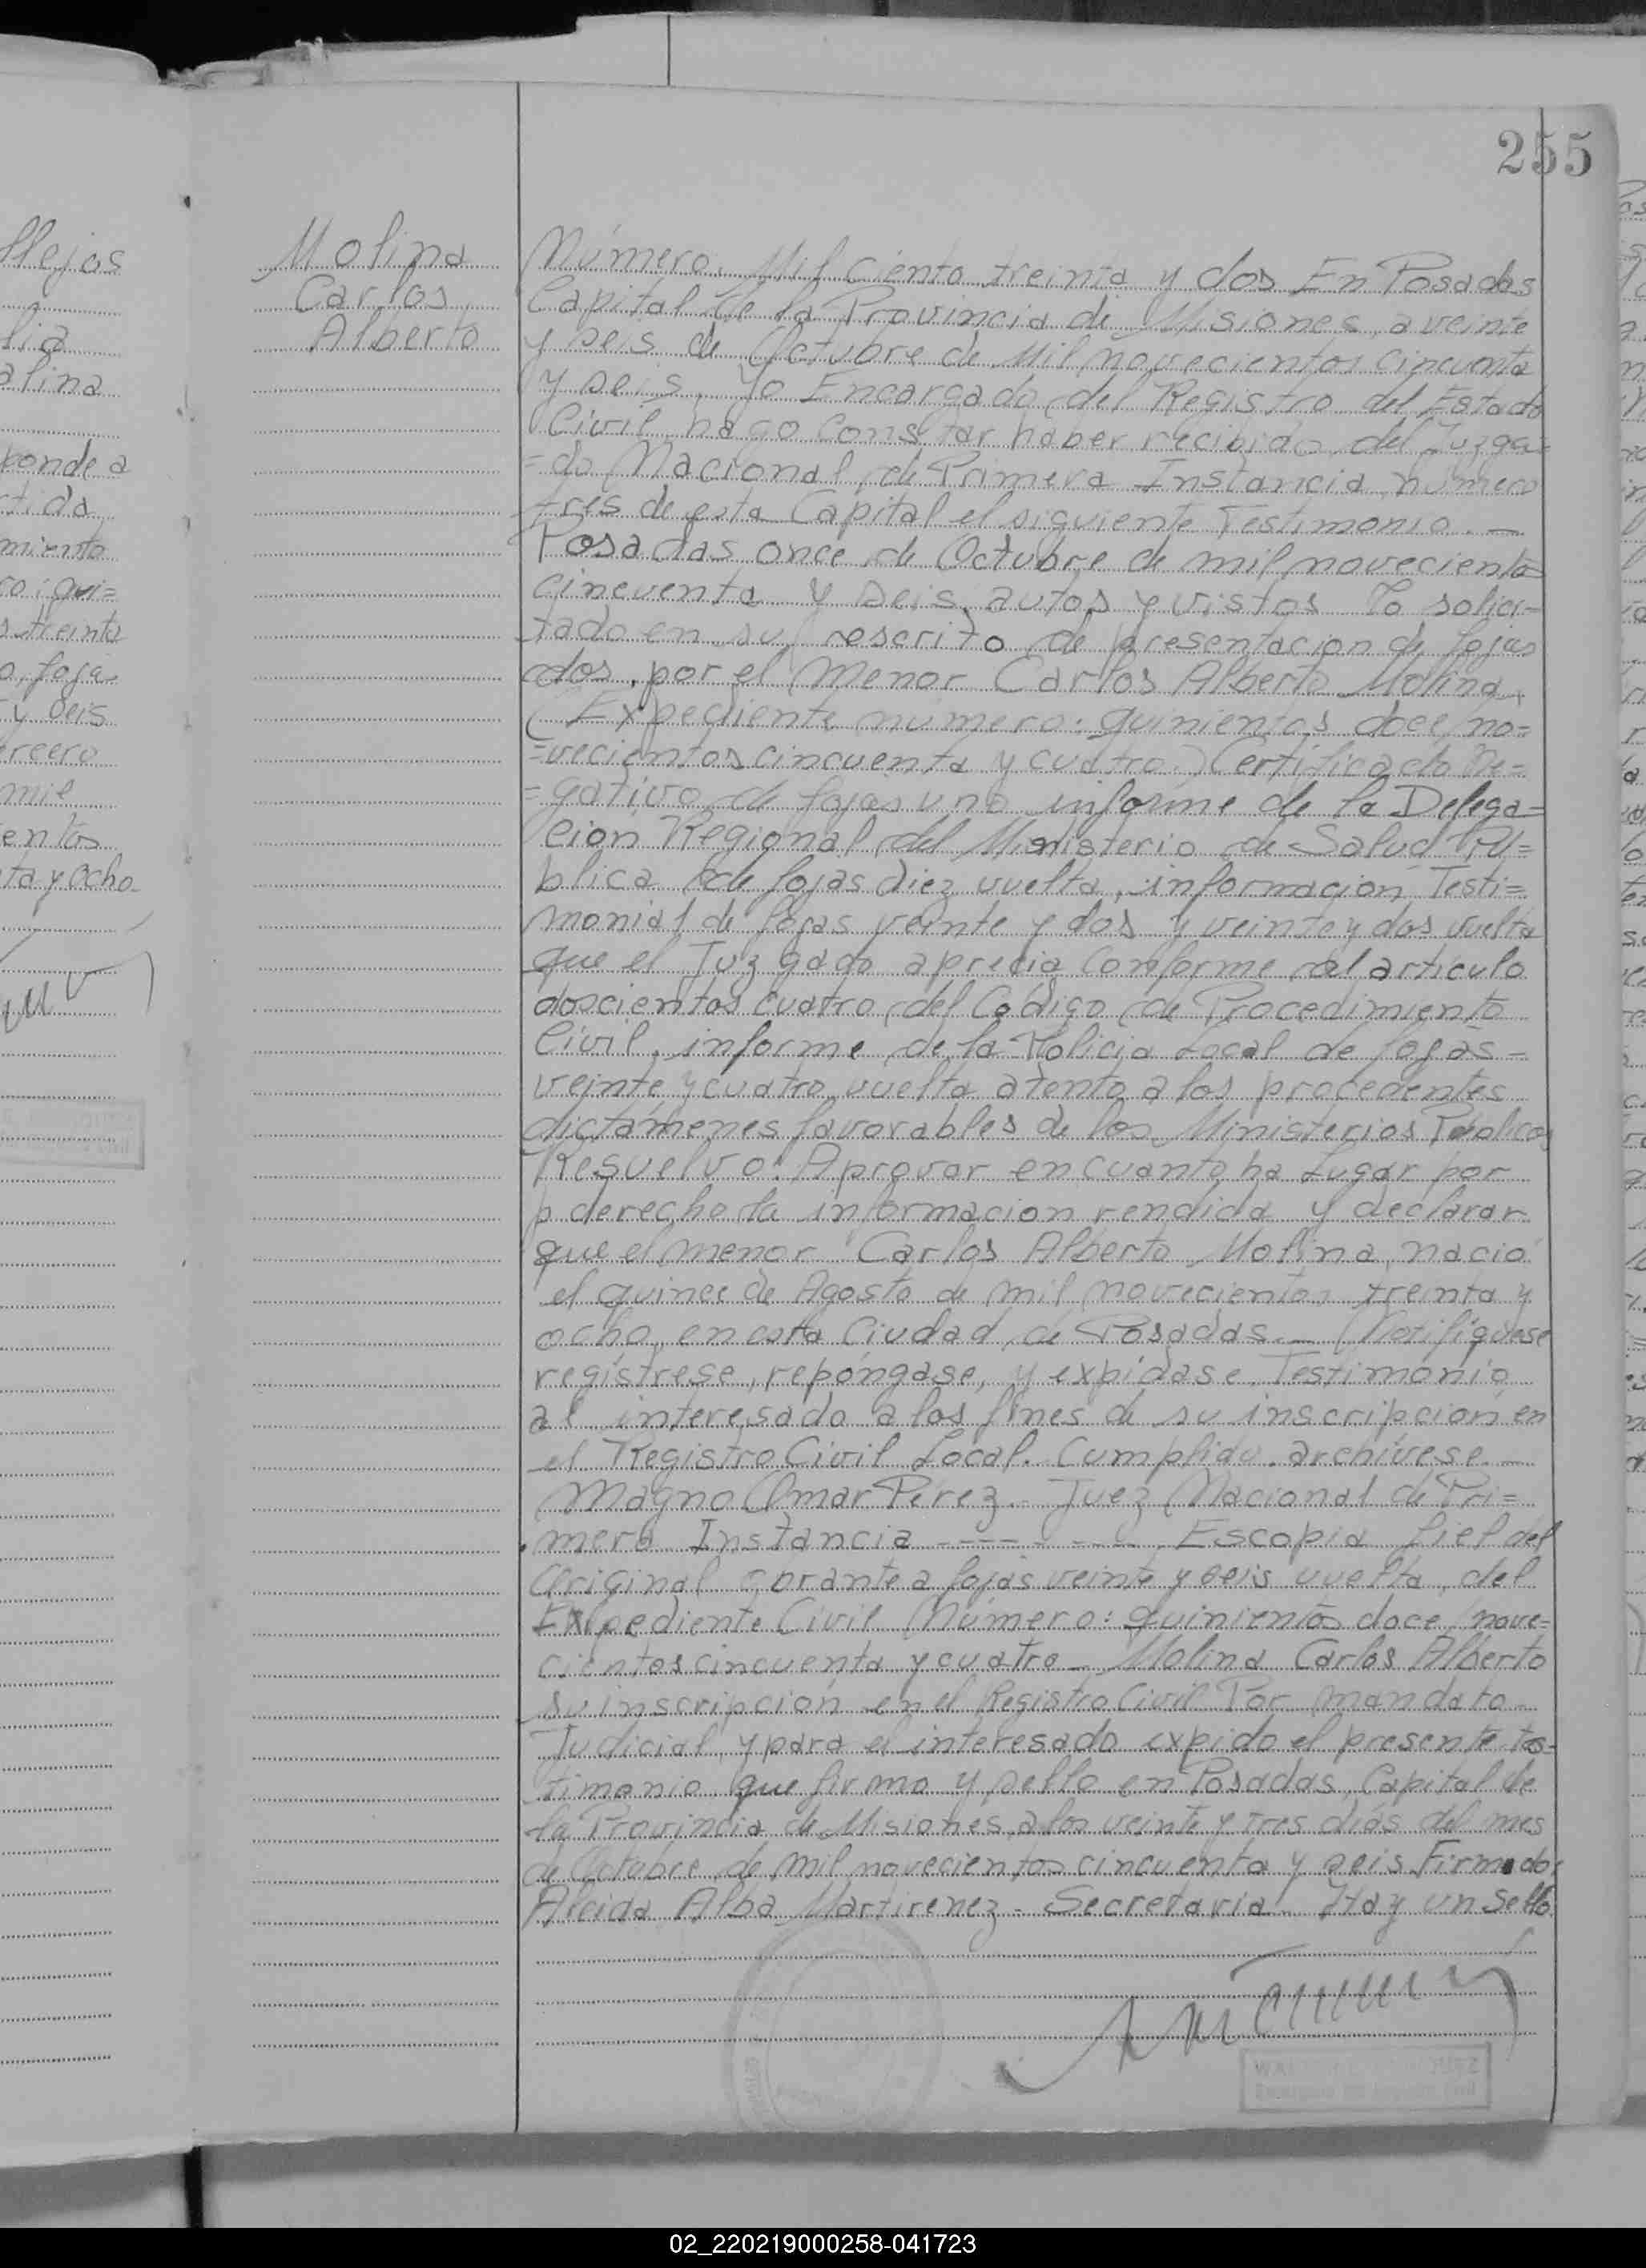 255
Molina
Carlos
Alberto
Número. Mil ciento treinta y dos En Posadas
Capital de la Provincia de Misiones, a veinte
y seis de Octubre de Mil novecientos cincuenta
y seis, Yo Encargado del Registro del Estado
Civil, hago constar haber recibido del Juzga=
=do Nacional de Primera Instancia número
tres de esta Capital el siguiente Testimonio.—
Posadas once de Octubre de mil novecientos
cincuenta y seis, autos y vistos lo solici-
tado en su escrito de presentacion de fojas
dos, por el menor Carlos Alberto Molina,
(Expediente número: quinientos doce, no=
=vecientos cincuenta y cuatro.) Certificado Ne=
=gativo de fojas uno informe de la Delega=
cion Regional del Ministerio de Salud Pú=
blica de fojas diez vuelta, informacion Testi=
monial de fojas veinte y dos y veinte y dos vuelta
que el Juzgado aprecia conforme al artículo
doscientos cuatro del Código de Procedimiento
Civil, informe de la Policia Local de fojas-
veinte y cuatro vuelta atento a los procedentes
dictámenes favorables de los Ministerios Públicos
Resuelvo: Aprovar en cuanto ha Lugar por
derecho la informacion rendida y declarar
que el menor Carlos Alberto Molina, nació
el quince de Agosto de mil novecientos treinta y
ocho, en esta Ciudad de Posadas.— Notifíquese
regístrese, repóngase, y expídase Testimonio
al interesado a los fines de su inscripcion en
el Registro Civil Local. Cumplido. archívese.—
Magno Omar Pérez.- Juez Nacional de Pri=
mera Instancia --------- Es copia fiel del
Original obrante a fojas veinte y seis vuelta, del
Expediente Civil Número: quinientos doce, nove=
cientos cincuenta y cuatro - Molina Carlos Alberto
su inscripción en el Registro Civil Por mandato
Judicial, y para el interesado expido el presente tes=
timonio que firmo y sello en Posadas, Capital de
la Provincia de Misiones, a los veinte y tres días del mes
de Octubre de mil novecientos cincuenta y seis Firmado:
Alcida Alba Martirenez - Secretaria - Hay un Sello
llejos
lia
alina
ponde a
tida
miento
treinta
foja
y seis
ercero
mil
entos
ta y ocho
02_220219000258-041723